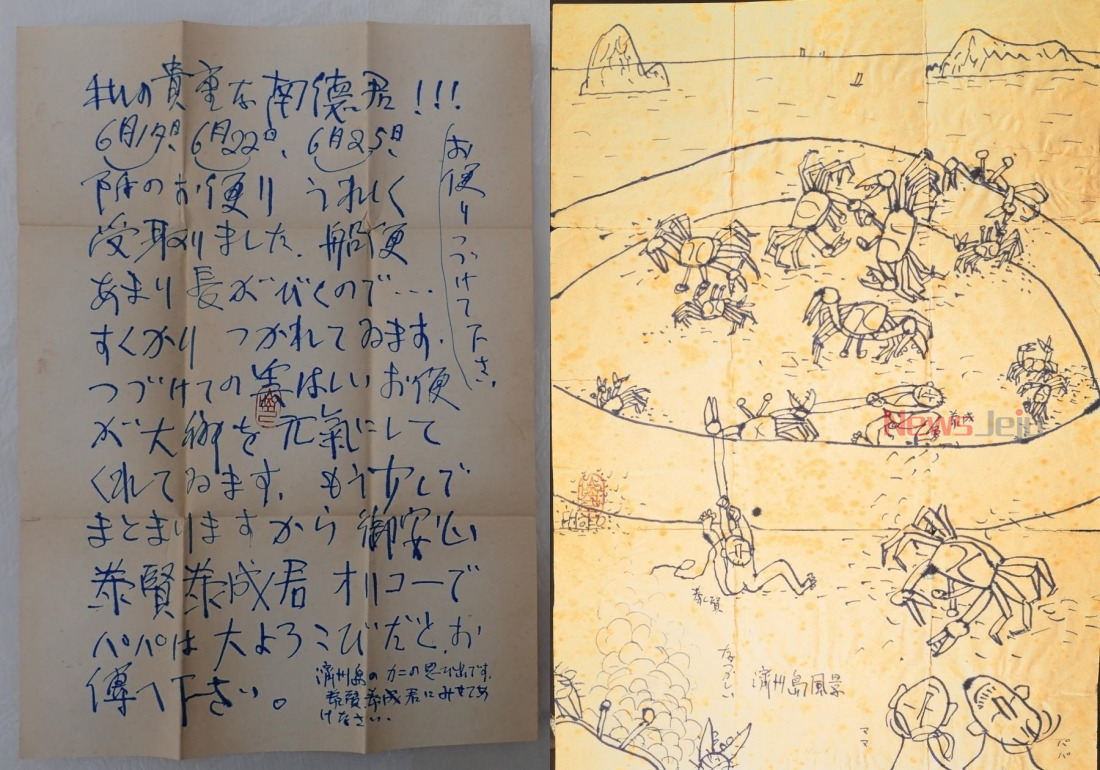 私の貴重な南德君!!!
6月19日、6月22日、6月25日
附のお便り うれしく
受取りました。船便
あまり長がびくので…
すくかり つかれてゐます。
つづけての はしいお便
が大鄕を元氣にして
くれてゐます。もう少しで
まとまりますから御安心
泰賢泰成君 オリコーで
パパは大よろこびだと、お
傳へ下さい。
お便りつづけて下さい。
濟州島のカニの思ひ出です。
泰賢泰成君にみせてあ
げなさい。
泰成
NewsJeju
泰賢
なつかしい
濟州島風景
ママ
パパ